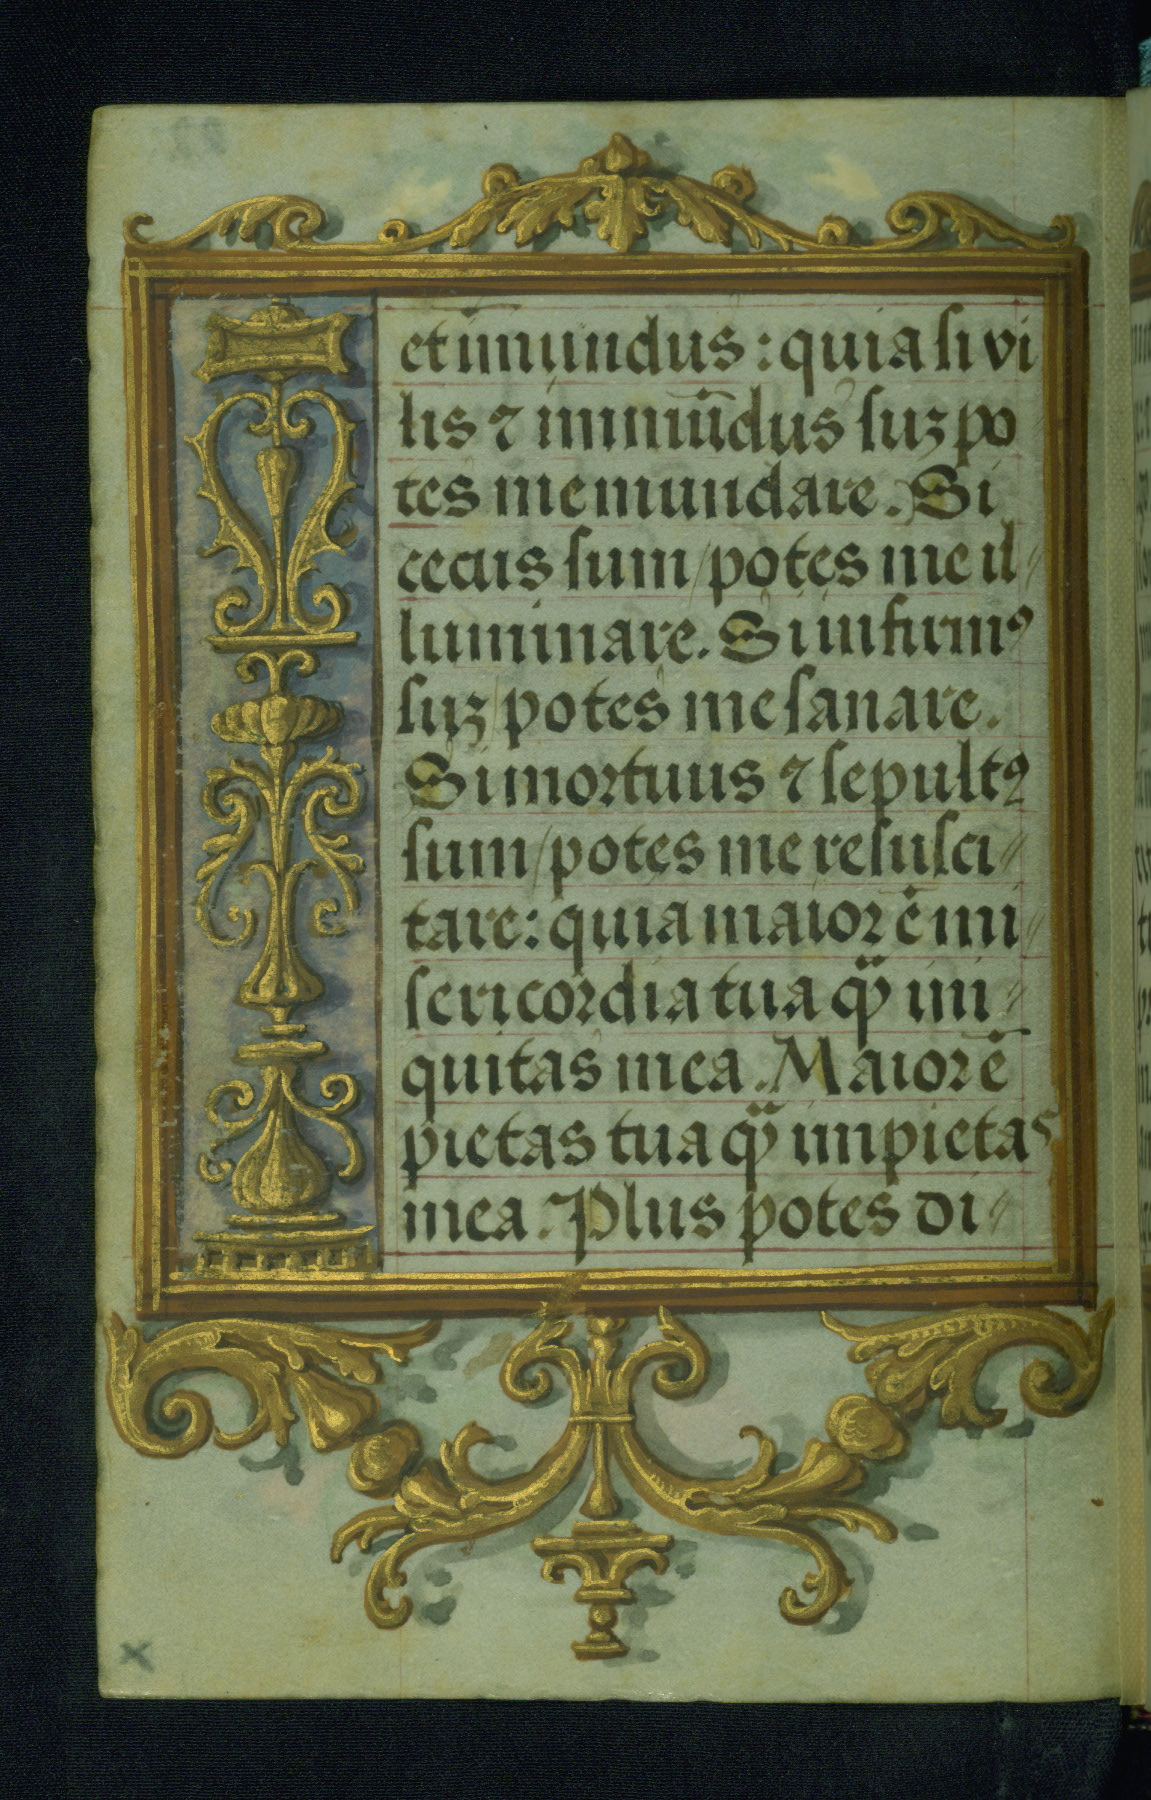 et imundus : quia si vi
lis ⁊ inmūdus suꝫ po
tes me mundare . Si
cecus sum / potes me il
luminare . Si infirmꝰ
suꝫ / potes me sanare .
Si mortuus ⁊ sepultꝰ
sum / potes me resusci
tare : quia maior ē mi
sericordia tua qͣꝫ ini
quitas mea . Maior ē
pietas tua qͣꝫ impietas
mea . Plus potes di